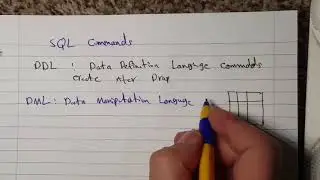 SQL Commands
DDL : Data Definition Language commads
Create Alter Drop
DML : Data Manipulation Language